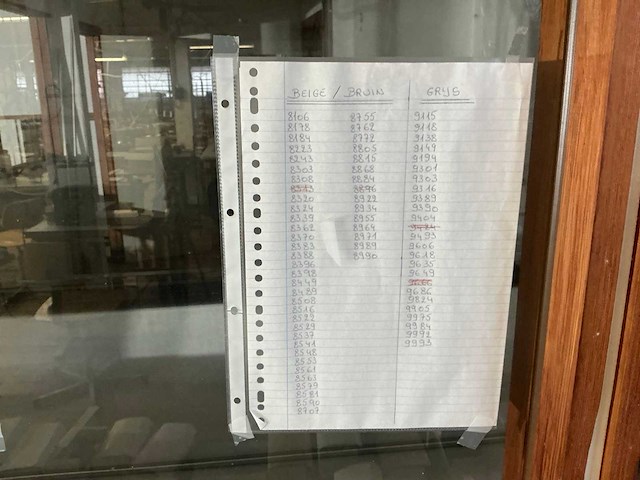 BEIGE / BRUIN
8106
8178
8184
8223
8243
8303
8308
8313
8320
8324
8339
8362
8370
8383
8388
8396
8398
8449
8489
8508
8516
8522
8529
8537
8541
8548
8553
8561
8563
8579
8581
8590
8707
8755
8762
8772
8805
8815
8868
8884
8896
8922
8934
8955
8964
8971
8989
8990
GRYS
9115
9118
9138
9149
9194
9301
9303
9316
9389
9390
9404
9424
9493
9606
9618
9635
9649
9666
9686
9824
9905
9975
9984
9992
9993